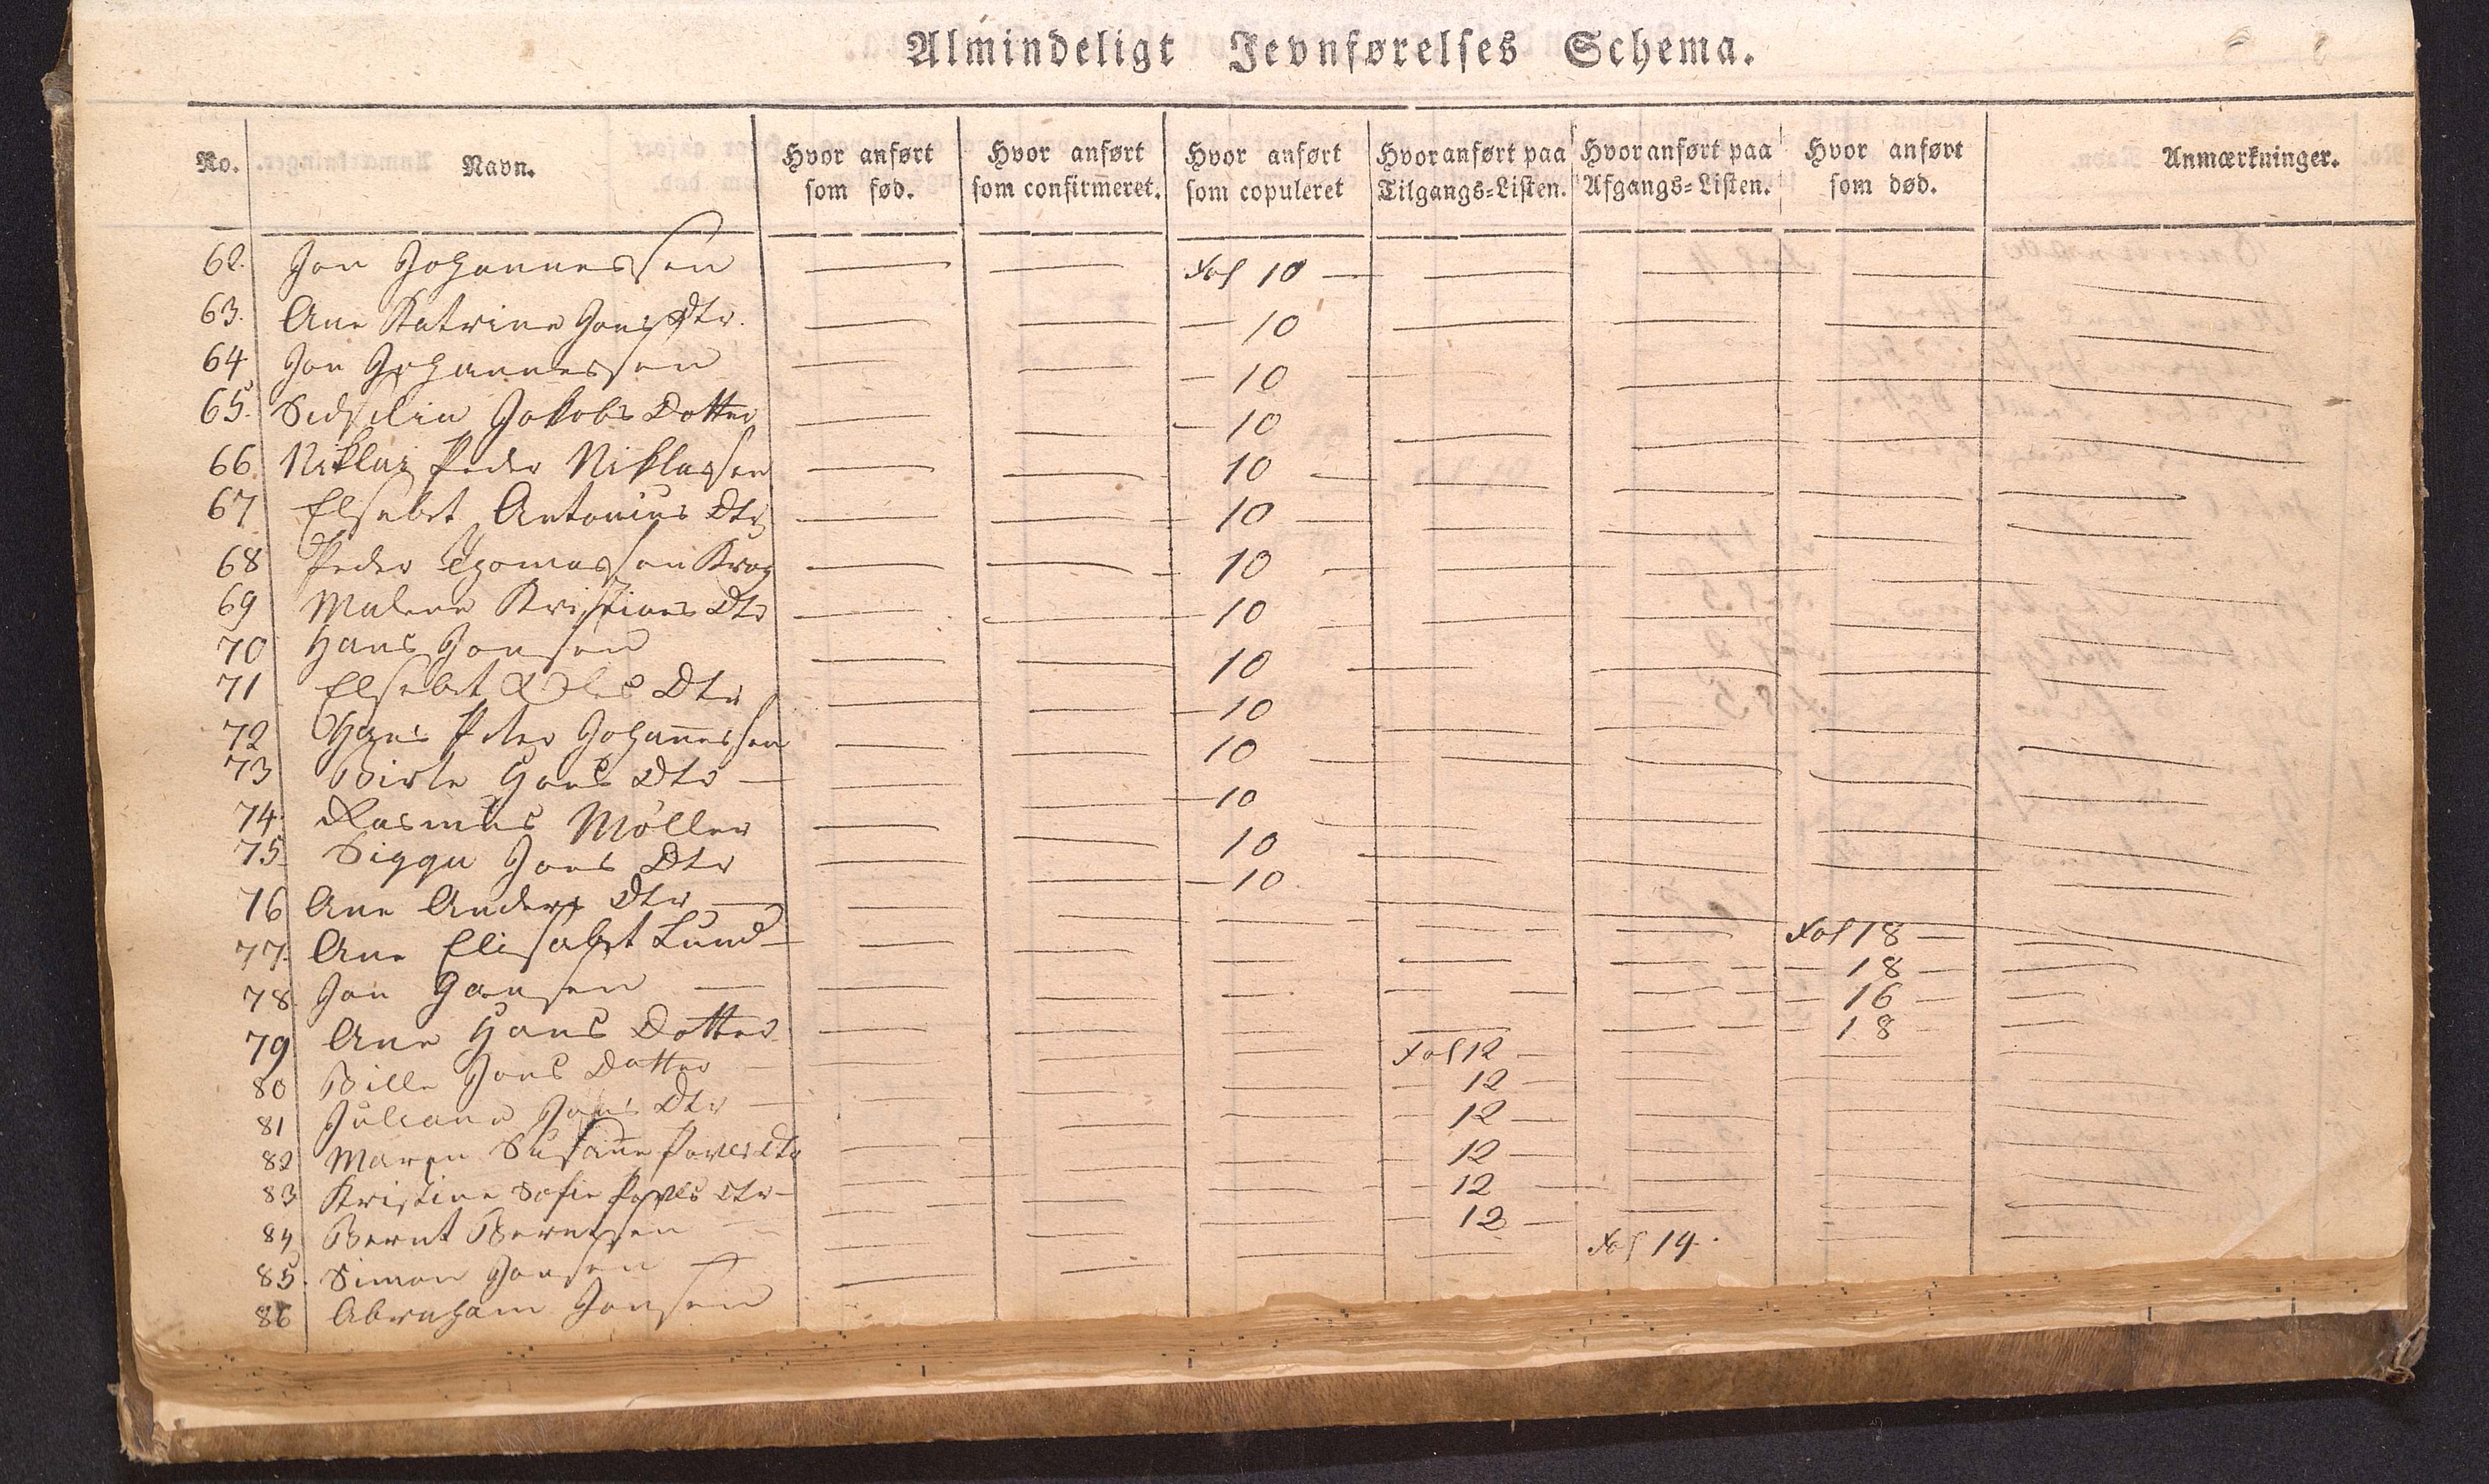 Almindeligt Jevnførelses Schema.
No. Navn. Hvor anført som fød. Hvor anført som confirmeret. Hvor anført som copuleret Hvor anført paa Tilgangs-Listen. Hvor anført paa Afgangs-Listen. Hvor anført som død. Anmærkninger.
62. Jon Johannessen — — Fol 10 — — — — —
63. Ane Katrine Jons Dtr. — — — 10 — — — —
64 Jon Johannessen — — — 10 — — — —
65. Jakobs Dotter — — — 10 — — — —
66. Niklas Peder Niklassen — — 10 — — — — —
67 Elsebet Antonius Dtr — — 10 — — — — —
68 Peder Thomassen Krog — — 10 — — — — —
69 Malene Kristians Dtr — — 10 — — — — —
70 Hans Jonsen — — 10 — — — —
71 Elsebet Oles Dtr — — — 10 — — — —
72 Hans Peter Johannessen — — 10 — — — — —
73 Birte Hans Dtr — — — — 10 — — — —
74. Rasmus Möller — — 10 — — — —
75. Sigga Jons Dtr — — — 10 — — — —
76 Ane Anders Dtr — — — — — — Fol 18 — —
77. Ane Elisabet Lund — — — — — — — 18 — —
78. Jon Hansen — — — — — — — 16 — —
79 Ane Hans Dotter — — — — — — 18 —
80 Bille Jons Datter — — — — Fol 12 — — — —
81 Juliane Jons Dtr — — — — — 12 — — — —
82 Maren Susanne Povls Dtr — — — — 12 — — — —
83 Kristine Sofie Povls Dtr — — — — 12 — — — —
84 Bernt Berntsen — — — — — 12 — — — —
85. Simon Jonsen — — — — — 12 — — — —
86 Abraham Jonsen — — — — Fol 14. — —